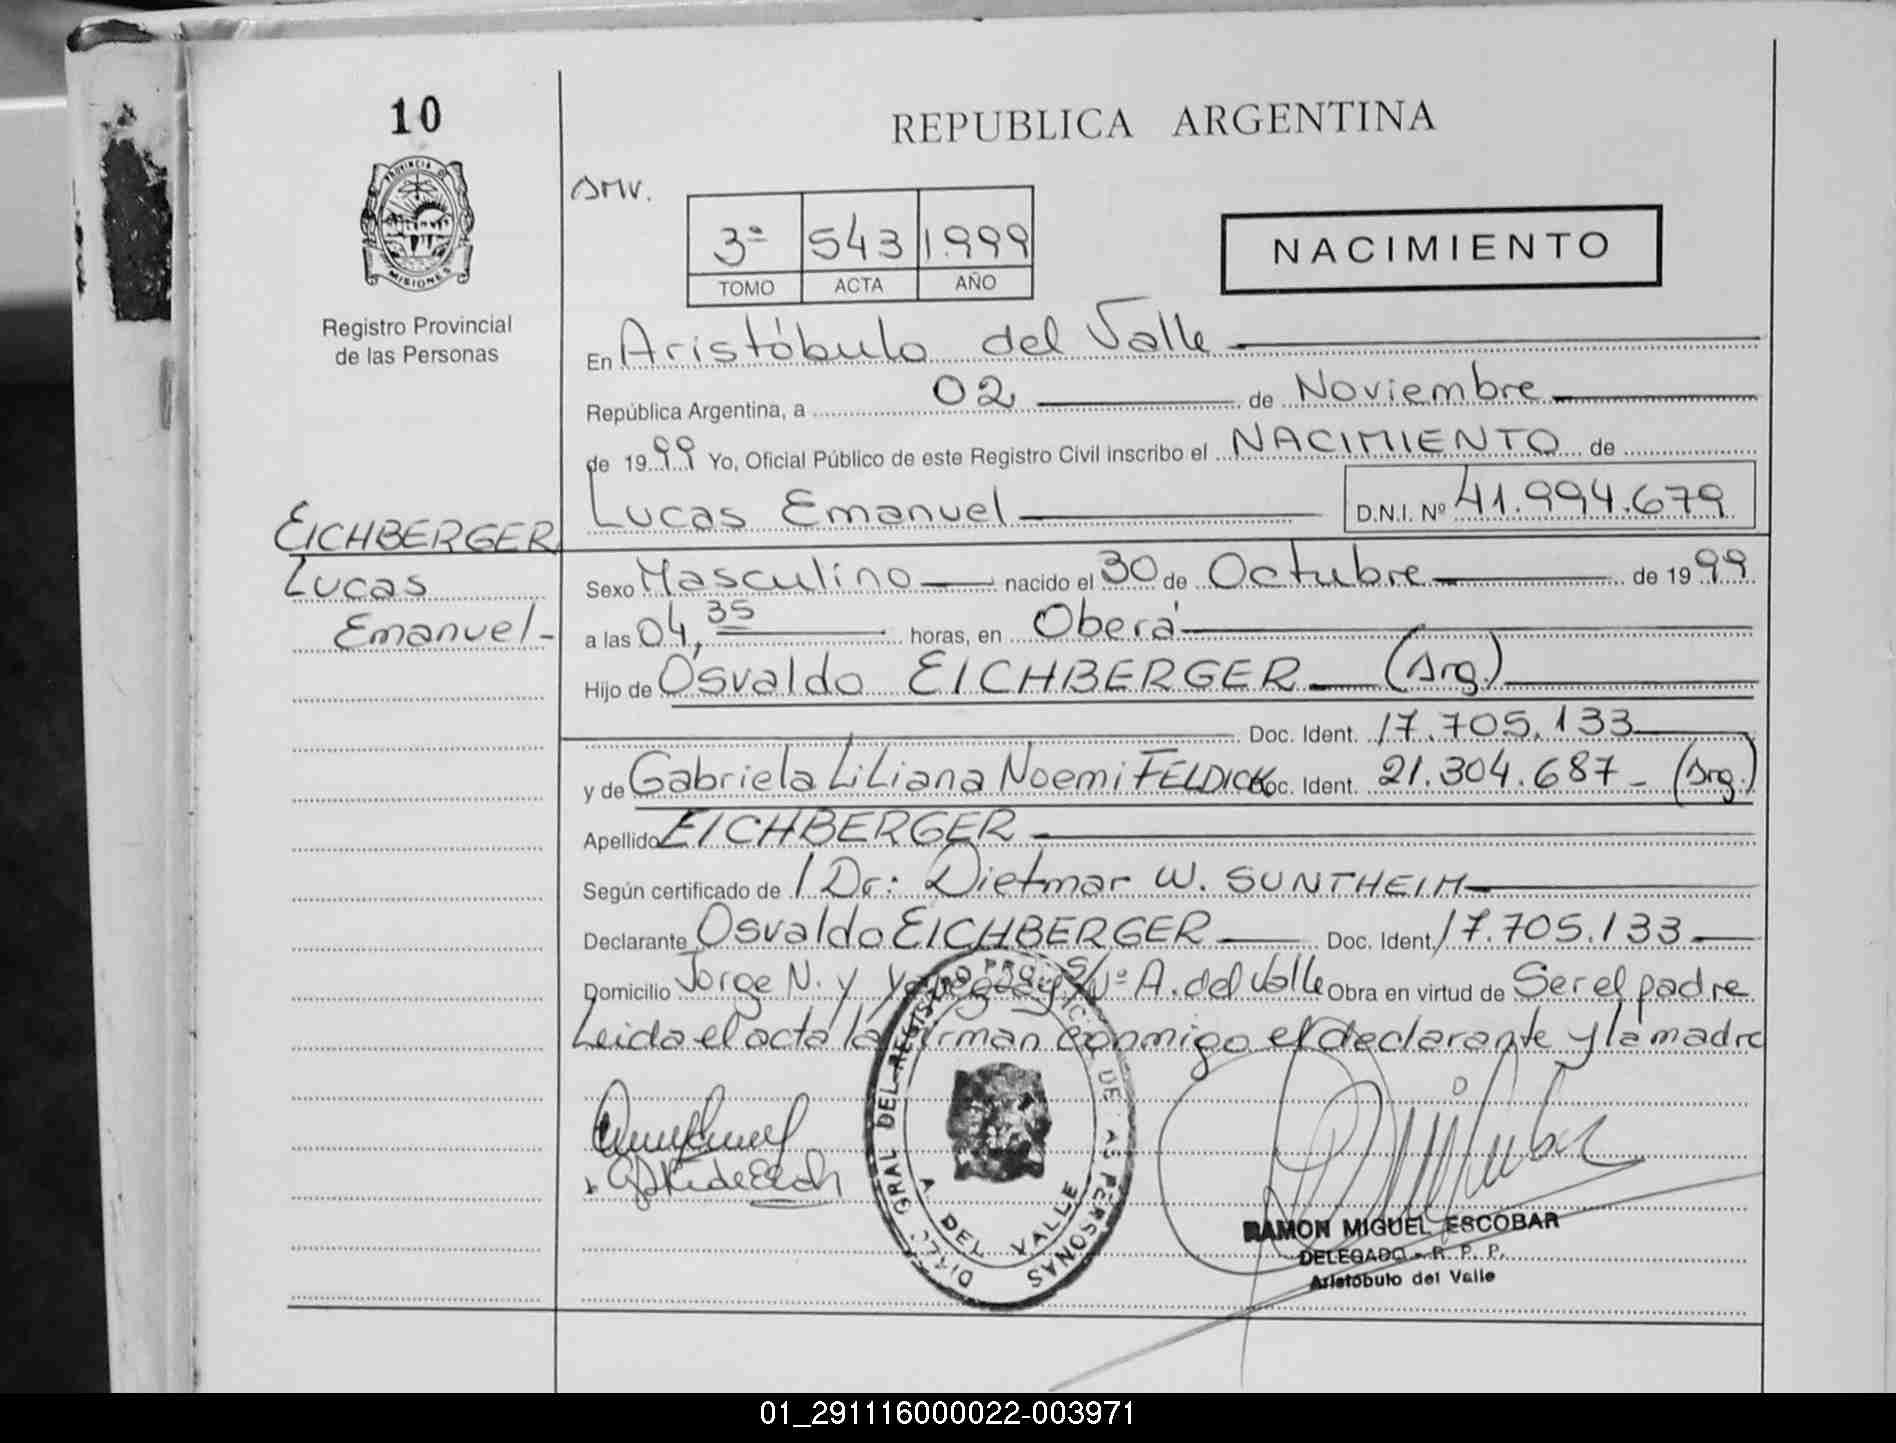 10
PROVINCIA DE
MISIONES
Registro Provincial
de las Personas
EICHBERGER
Lucas
Emanuel-
REPUBLICA ARGENTINA
3ª 543 1.999
TOMO ACTA AÑO
NACIMIENTO
En Aristóbulo del Valle
República Argentina, a 02 de Noviembre
de 1999 Yo, Oficial Público de este Registro Civil inscribo el NACIMIENTO de
Lucas Emanuel D.N.I. Nº 41.994.679
Sexo Masculino nacido el 30 de Octubre de 1999
a las 04,35 horas, en Oberá
Hijo de Osvaldo EICHBERGER (Arg.)
Doc. Ident. 17.705.133
y de Gabriela Liliana Noemi FELDICK Doc. Ident. 21.304.687 - (Arg.)
Apellido EICHBERGER
Según certificado de / Dr: Dietmar W. SUNTHEIM
Declarante Osvaldo EICHBERGER Doc. Ident. 17.705.133
Domicilio Jorge N. y S/Nº A. del Valle Obra en virtud de Ser el padre
Leida el acta la firman conmigo el declarante y la madre
DIREC. GRAL DEL REGISTRO PROVINC. DE LAS PERSONAS
A. DEL VALLE
RAMON MIGUEL ESCOBAR
DELEGADO - R. P. P.
Aristóbulo del Valle
01_291116000022-003971